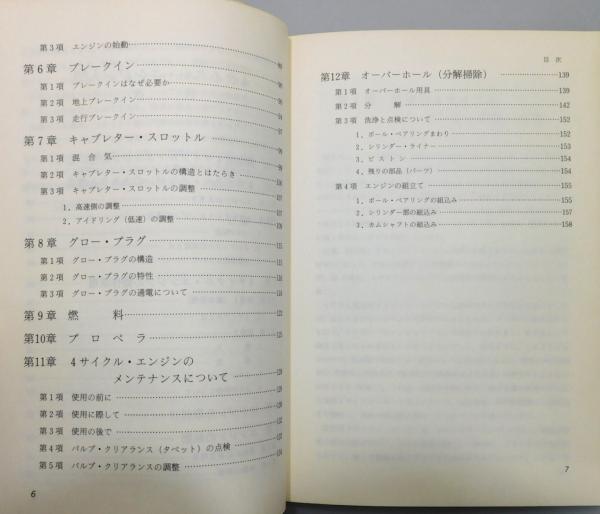 第3項 エンジンの始動
第6章 ブレークイン
第1項 ブレークインはなぜ必要か
第2項 地上ブレークイン
第3項 走行ブレークイン
第7章 キャブレター・スロットル
第1項 混合気
第2項 キャブレター・スロットルの構造とはたらき
第3項 キャブレター・スロットルの調整
1．高速側の調整
2．アイドリング（低速）の調整
第8章 グロー・プラグ
第1項 グロー・プラグの構造
第2項 グロー・プラグの特性
第3項 グロー・プラグの通電について
第9章 燃料
第10章 プロペラ
第11章 4サイクル・エンジンの
メンテナンスについて
第1項 使用の前に
第2項 使用に際して
第3項 使用の後で
第4項 バルブ・クリアランス（タペット）の点検
第5項 バルブ・クリアランスの調整
6
目次
第12章 オーバーホール（分解掃除） 139
第1項 オーバーホール用具 139
第2項 分解 142
第3項 洗浄と点検について 152
1．ボール・ベアリングまわり 152
2．シリンダー・ライナー 153
3．ピストン 154
4．残りの部品（パーツ） 154
第4項 エンジンの組立て 155
1．ボール・ベアリングの組込み 155
2．シリンダー部の組込み 157
3．カムシャフトの組込み 158
7